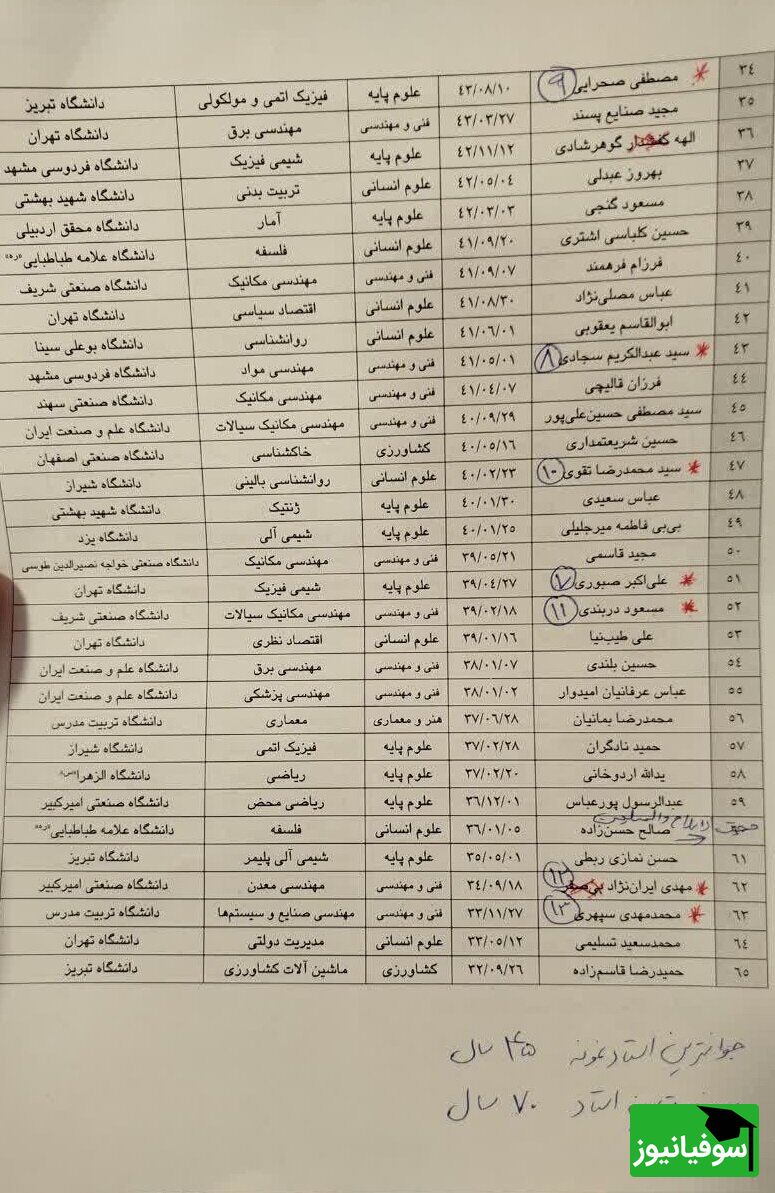 ٣٤ مصطفی صحرایی ٩ ٤٣/٠٨/١٠ علوم پایه فیزیک اتمی و مولکولی دانشگاه تبریز
٣٥ مجید صنایع پسند ٤٣/٠٣/٢٧ فنی و مهندسی مهندسی برق دانشگاه تهران
٣٦ الهه گوهرشادی ٤٢/١١/١٢ علوم پایه شیمی فیزیک دانشگاه فردوسی مشهد
٣٧ بهروز عبدلی ٤٢/٠٥/٠٤ علوم انسانی تربیت بدنی دانشگاه شهید بهشتی
٣٨ مسعود گنجی ٤٢/٠٣/٠٣ علوم پایه آمار دانشگاه محقق اردبیلی
٣٩ حسین کلباسی اشتری ٤١/٠٩/٢٠ علوم انسانی فلسفه دانشگاه علامه طباطبایی«ره»
٤٠ فرزام فرهمند ٤١/٠٩/٠٧ فنی و مهندسی مهندسی مکانیک دانشگاه صنعتی شریف
٤١ عباس مصلی‌نژاد ٤١/٠٨/٣٠ علوم انسانی اقتصاد سیاسی دانشگاه تهران
٤٢ ابوالقاسم یعقوبی ٤١/٠٦/٠١ علوم انسانی روانشناسی دانشگاه بوعلی سینا
٤٣ سید عبدالکریم سجادی ٨ ٤١/٠٥/٠١ فنی و مهندسی مهندسی مواد دانشگاه فردوسی مشهد
٤٤ فرزان قالیچی ٤١/٠٤/٠٧ فنی و مهندسی مهندسی مکانیک دانشگاه صنعتی سهند
٤٥ سید مصطفی حسین‌علی‌پور ٤٠/٠٩/٢٩ فنی و مهندسی مهندسی مکانیک سیالات دانشگاه علم و صنعت ایران
٤٦ حسین شریعتمداری ٤٠/٠٥/١٦ کشاورزی خاکشناسی دانشگاه صنعتی اصفهان
٤٧ سید محمدرضا تقوی ١٠ ٤٠/٠٢/٢٣ علوم انسانی روانشناسی بالینی دانشگاه شیراز
٤٨ عباس سعیدی ٤٠/٠١/٣٠ علوم پایه ژنتیک دانشگاه شهید بهشتی
٤٩ بی‌بی فاطمه میرجلیلی ٤٠/٠١/٢٥ علوم پایه شیمی آلی دانشگاه یزد
٥٠ مجید قاسمی ٣٩/٠٥/٢١ فنی و مهندسی مهندسی مکانیک دانشگاه صنعتی خواجه نصیرالدین طوسی
٥١ علی‌اکبر صبوری ٧ ٣٩/٠٤/٢٧ علوم پایه شیمی فیزیک دانشگاه تهران
٥٢ مسعود دربندی ١١ ٣٩/٠٢/١٨ فنی و مهندسی مهندسی مکانیک سیالات دانشگاه صنعتی شریف
٥٣ علی طیب‌نیا ٣٩/٠١/١٦ علوم انسانی اقتصاد نظری دانشگاه تهران
٥٤ حسین بلندی ٣٨/٠١/٠٧ فنی و مهندسی مهندسی برق دانشگاه علم و صنعت ایران
٥٥ عباس عرفانیان امیدوار ٣٨/٠١/٠٢ فنی و مهندسی مهندسی پزشکی دانشگاه علم و صنعت ایران
٥٦ محمدرضا بمانیان ٣٧/٠٦/٢٨ هنر و معماری معماری دانشگاه تربیت مدرس
٥٧ حمید نادگران ٣٧/٠٢/٢٨ علوم پایه فیزیک اتمی دانشگاه شیراز
٥٨ یدالله اردوخانی ٣٧/٠٢/٢٠ علوم پایه ریاضی دانشگاه الزهرا«س»
٥٩ عبدالرسول پورعباس ٣٦/١٢/٠١ علوم پایه ریاضی محض دانشگاه صنعتی امیرکبیر
صالح حسن‌زاده ٣٦/٠١/٠٥ علوم انسانی فلسفه دانشگاه علامه طباطبایی«ره»
٦١ حسن نمازی ربطی ٣٥/٠٥/٠١ علوم پایه شیمی آلی پلیمر دانشگاه تبریز
٦٢ مهدی ایران‌نژاد ١٢ ٣٤/٠٩/١٨ فنی و مهندسی مهندسی معدن دانشگاه صنعتی امیرکبیر
٦٣ محمدمهدی سپهری ١٣ ٣٣/١١/٢٧ فنی و مهندسی مهندسی صنایع و سیستم‌ها دانشگاه تربیت مدرس
٦٤ محمدسعید تسلیمی ٣٣/٠٥/١٢ علوم انسانی مدیریت دولتی دانشگاه تهران
٦٥ حمیدرضا قاسم‌زاده ٣٢/٠٩/٢٦ کشاورزی ماشین آلات کشاورزی دانشگاه تبریز
جوانترین استاد نمونه ٤٥ سال
استاد ٧٠ سال
سوفیانیوز